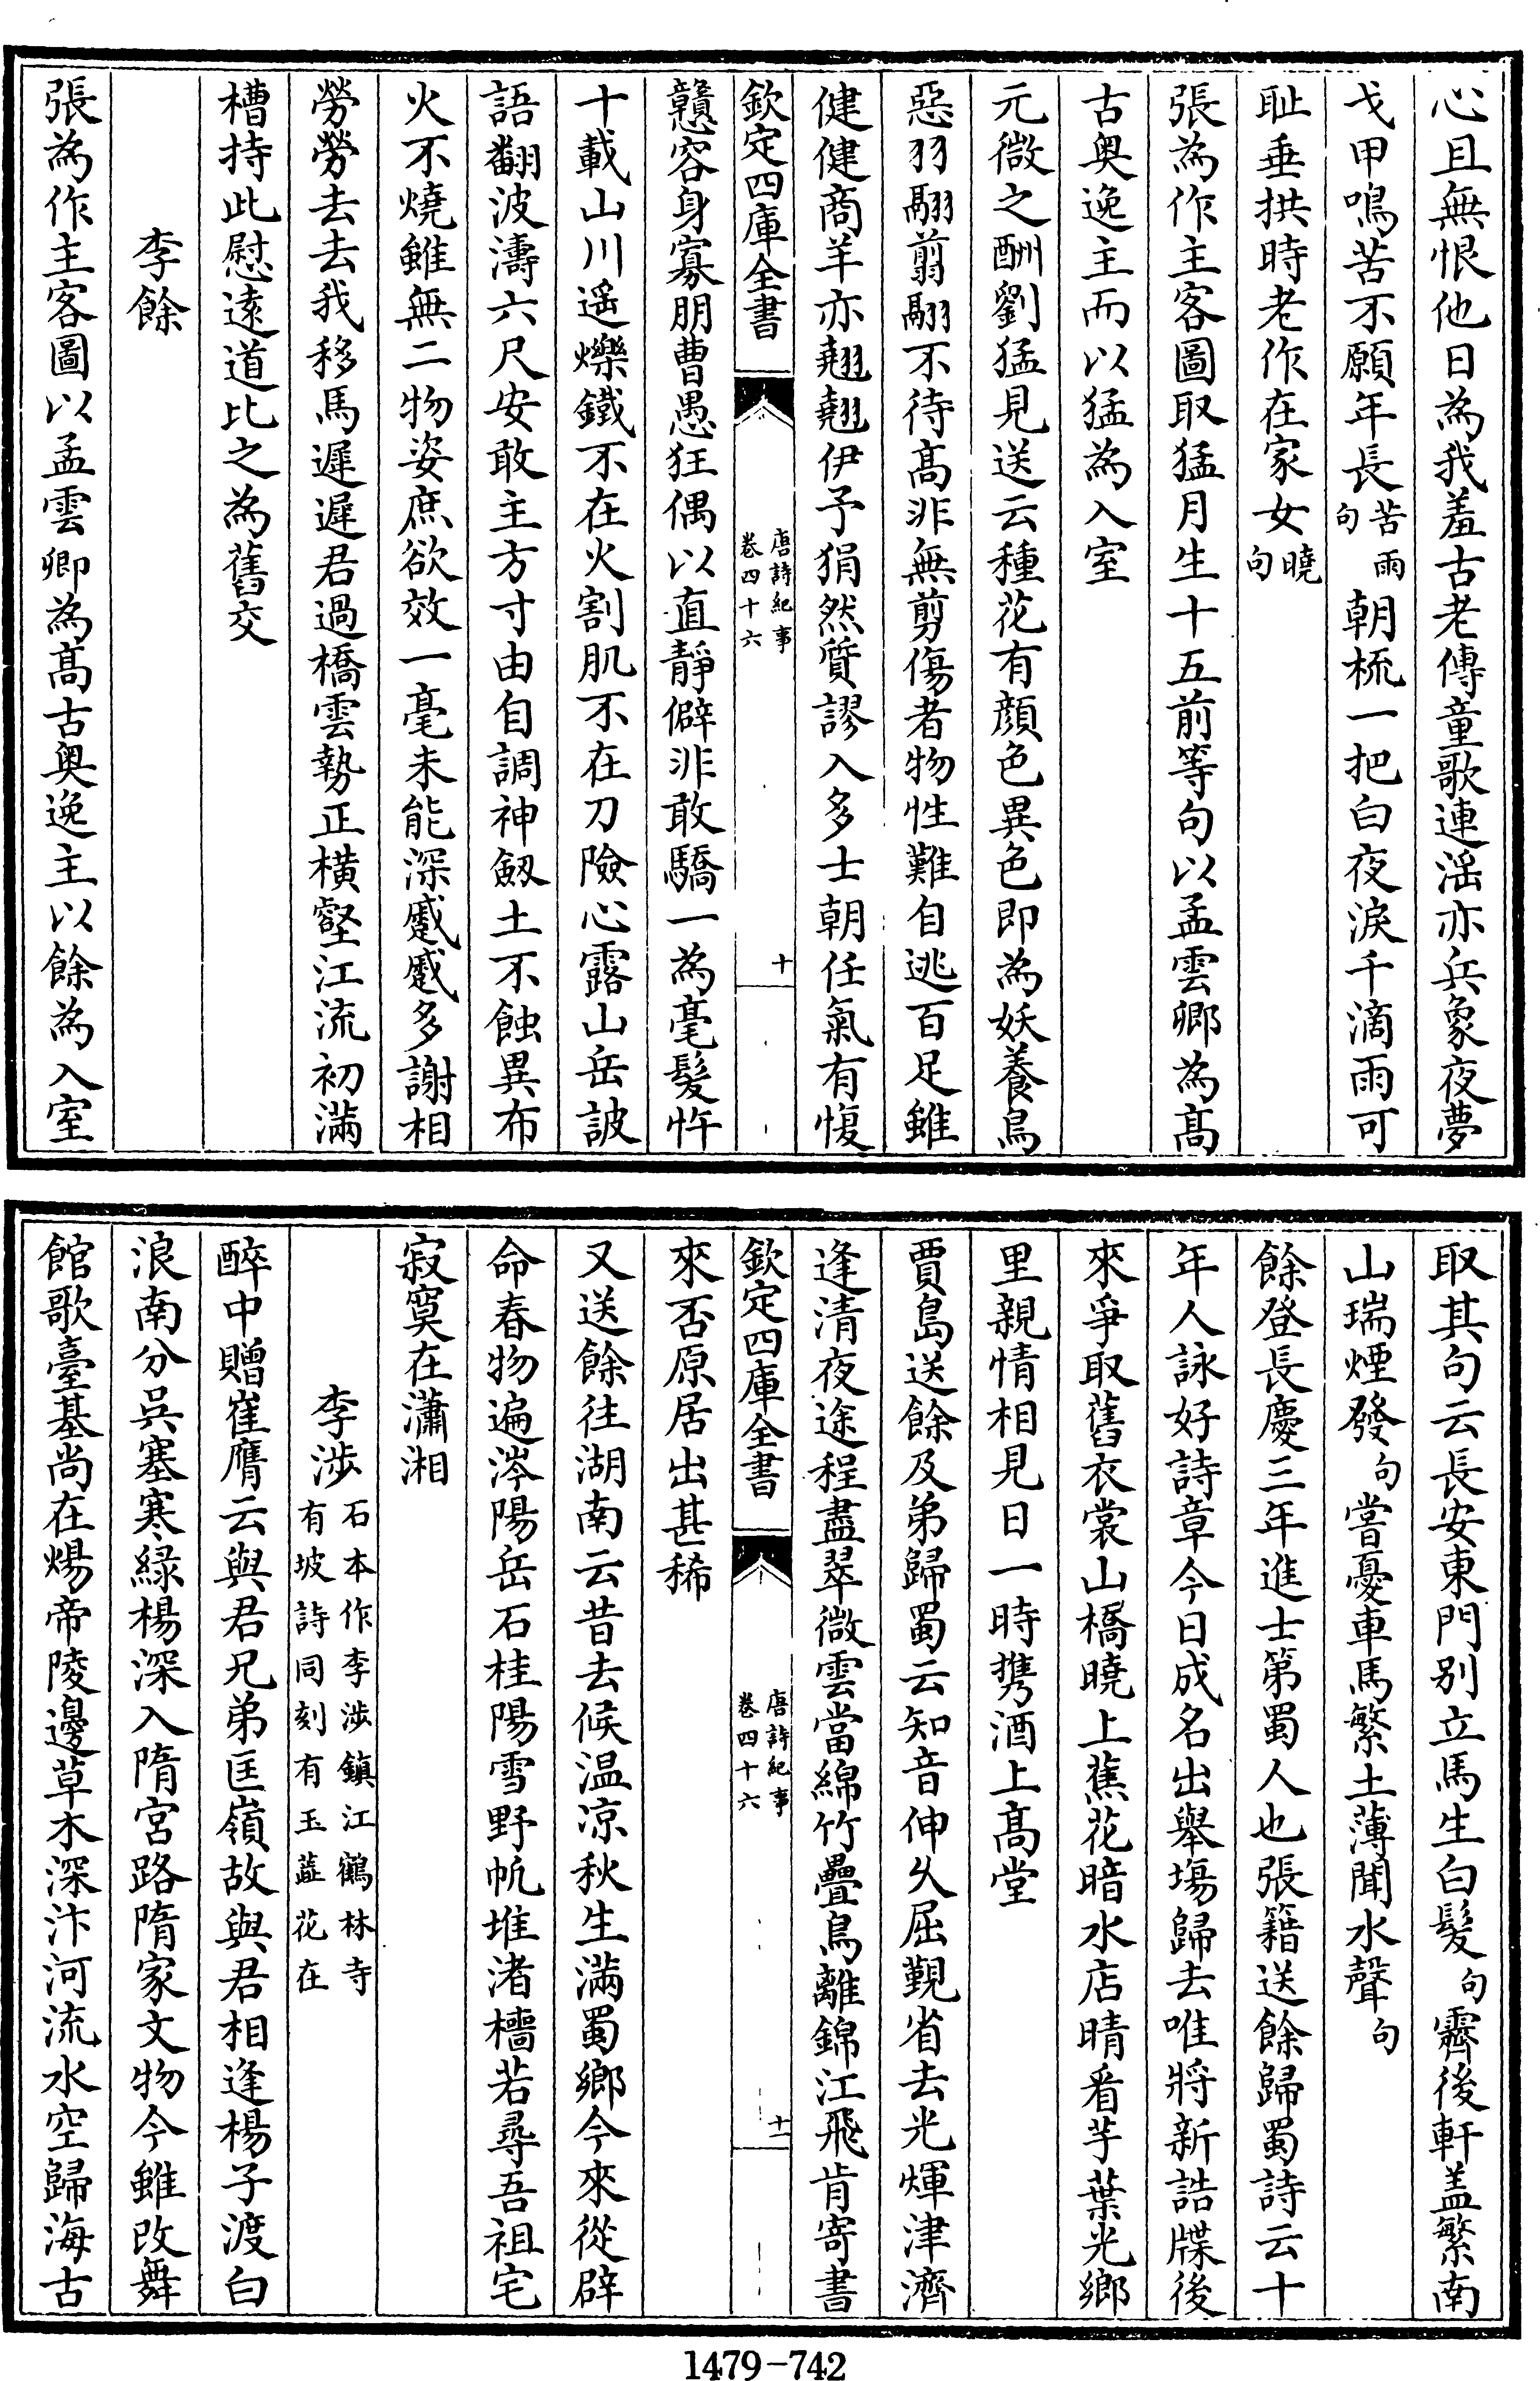 心且無恨他日為我羞古老傳童歌連滛亦兵象夜夢
戈甲鳴苦不願年長苦雨句朝梳一把白夜淚千滴雨可
耻垂拱時老作在家女曉句
張為作主客圖取猛月生十五前等句以孟雲卿為髙
古奥逸主而以猛為入室
元微之酬劉猛見送云種花有顔色異色即為妖養鳥
惡羽翮翦翮不待髙非無剪傷者物性難自逃百足雖
健健商羊亦翹翹伊予狷然質謬入多士朝任氣有愎
欽定四庫全書
唐詩紀事
卷四十六
十
戇容身寡朋曹愚狂偶以直靜僻非敢驕一為毫髮忤
十載山川遥爍鐵不在火割肌不在刀險心露山岳詖
語翻波濤六尺安敢主方寸由自調神劔土不蝕異布
火不燒雖無二物姿庶欲效一毫未能深慼慼多謝相
勞勞去去我移馬遲遲君過橋雲勢正横壑江流初滿
槽持此慰逺道比之為舊交
李餘
張為作主客圖以孟雲卿為髙古奥逸主以餘為入室
取其句云長安東門别立馬生白髮句霽後軒盖繁南
山瑞煙發句嘗憂車馬繁土薄聞水聲句
餘登長慶三年進士第蜀人也張籍送餘歸蜀詩云十
年人詠好詩章今日成名出舉塲歸去唯將新誥牒後
來爭取舊衣裳山橋曉上蕉花暗水店晴看芋葉光鄉
里親情相見日一時携酒上髙堂
賈島送餘及弟歸蜀云知音伸久屈覲省去光煇津濟
逢清夜途程盡翠微雲當綿竹疊鳥離錦江飛肯寄書
欽定四庫全書
唐詩紀事
卷四十六
十一
來否原居出甚稀
又送餘往湖南云昔去候温凉秋生滿蜀鄉今來從辟
命春物遍涔陽岳石桂陽雪野帆堆渚檣若尋吾祖宅
寂寞在瀟湘
李涉石本作李涉鎮江鶴林寺
有坡詩同刻有玉蘂花在
醉中贈崔膺云與君兄弟匡嶺故與君相逢楊子渡白
浪南分吳塞寒緑楊深入隋宫路隋家文物今雖改舞
館歌臺基尚在煬帝陵邊草木深汴河流水空歸海古
1479-742